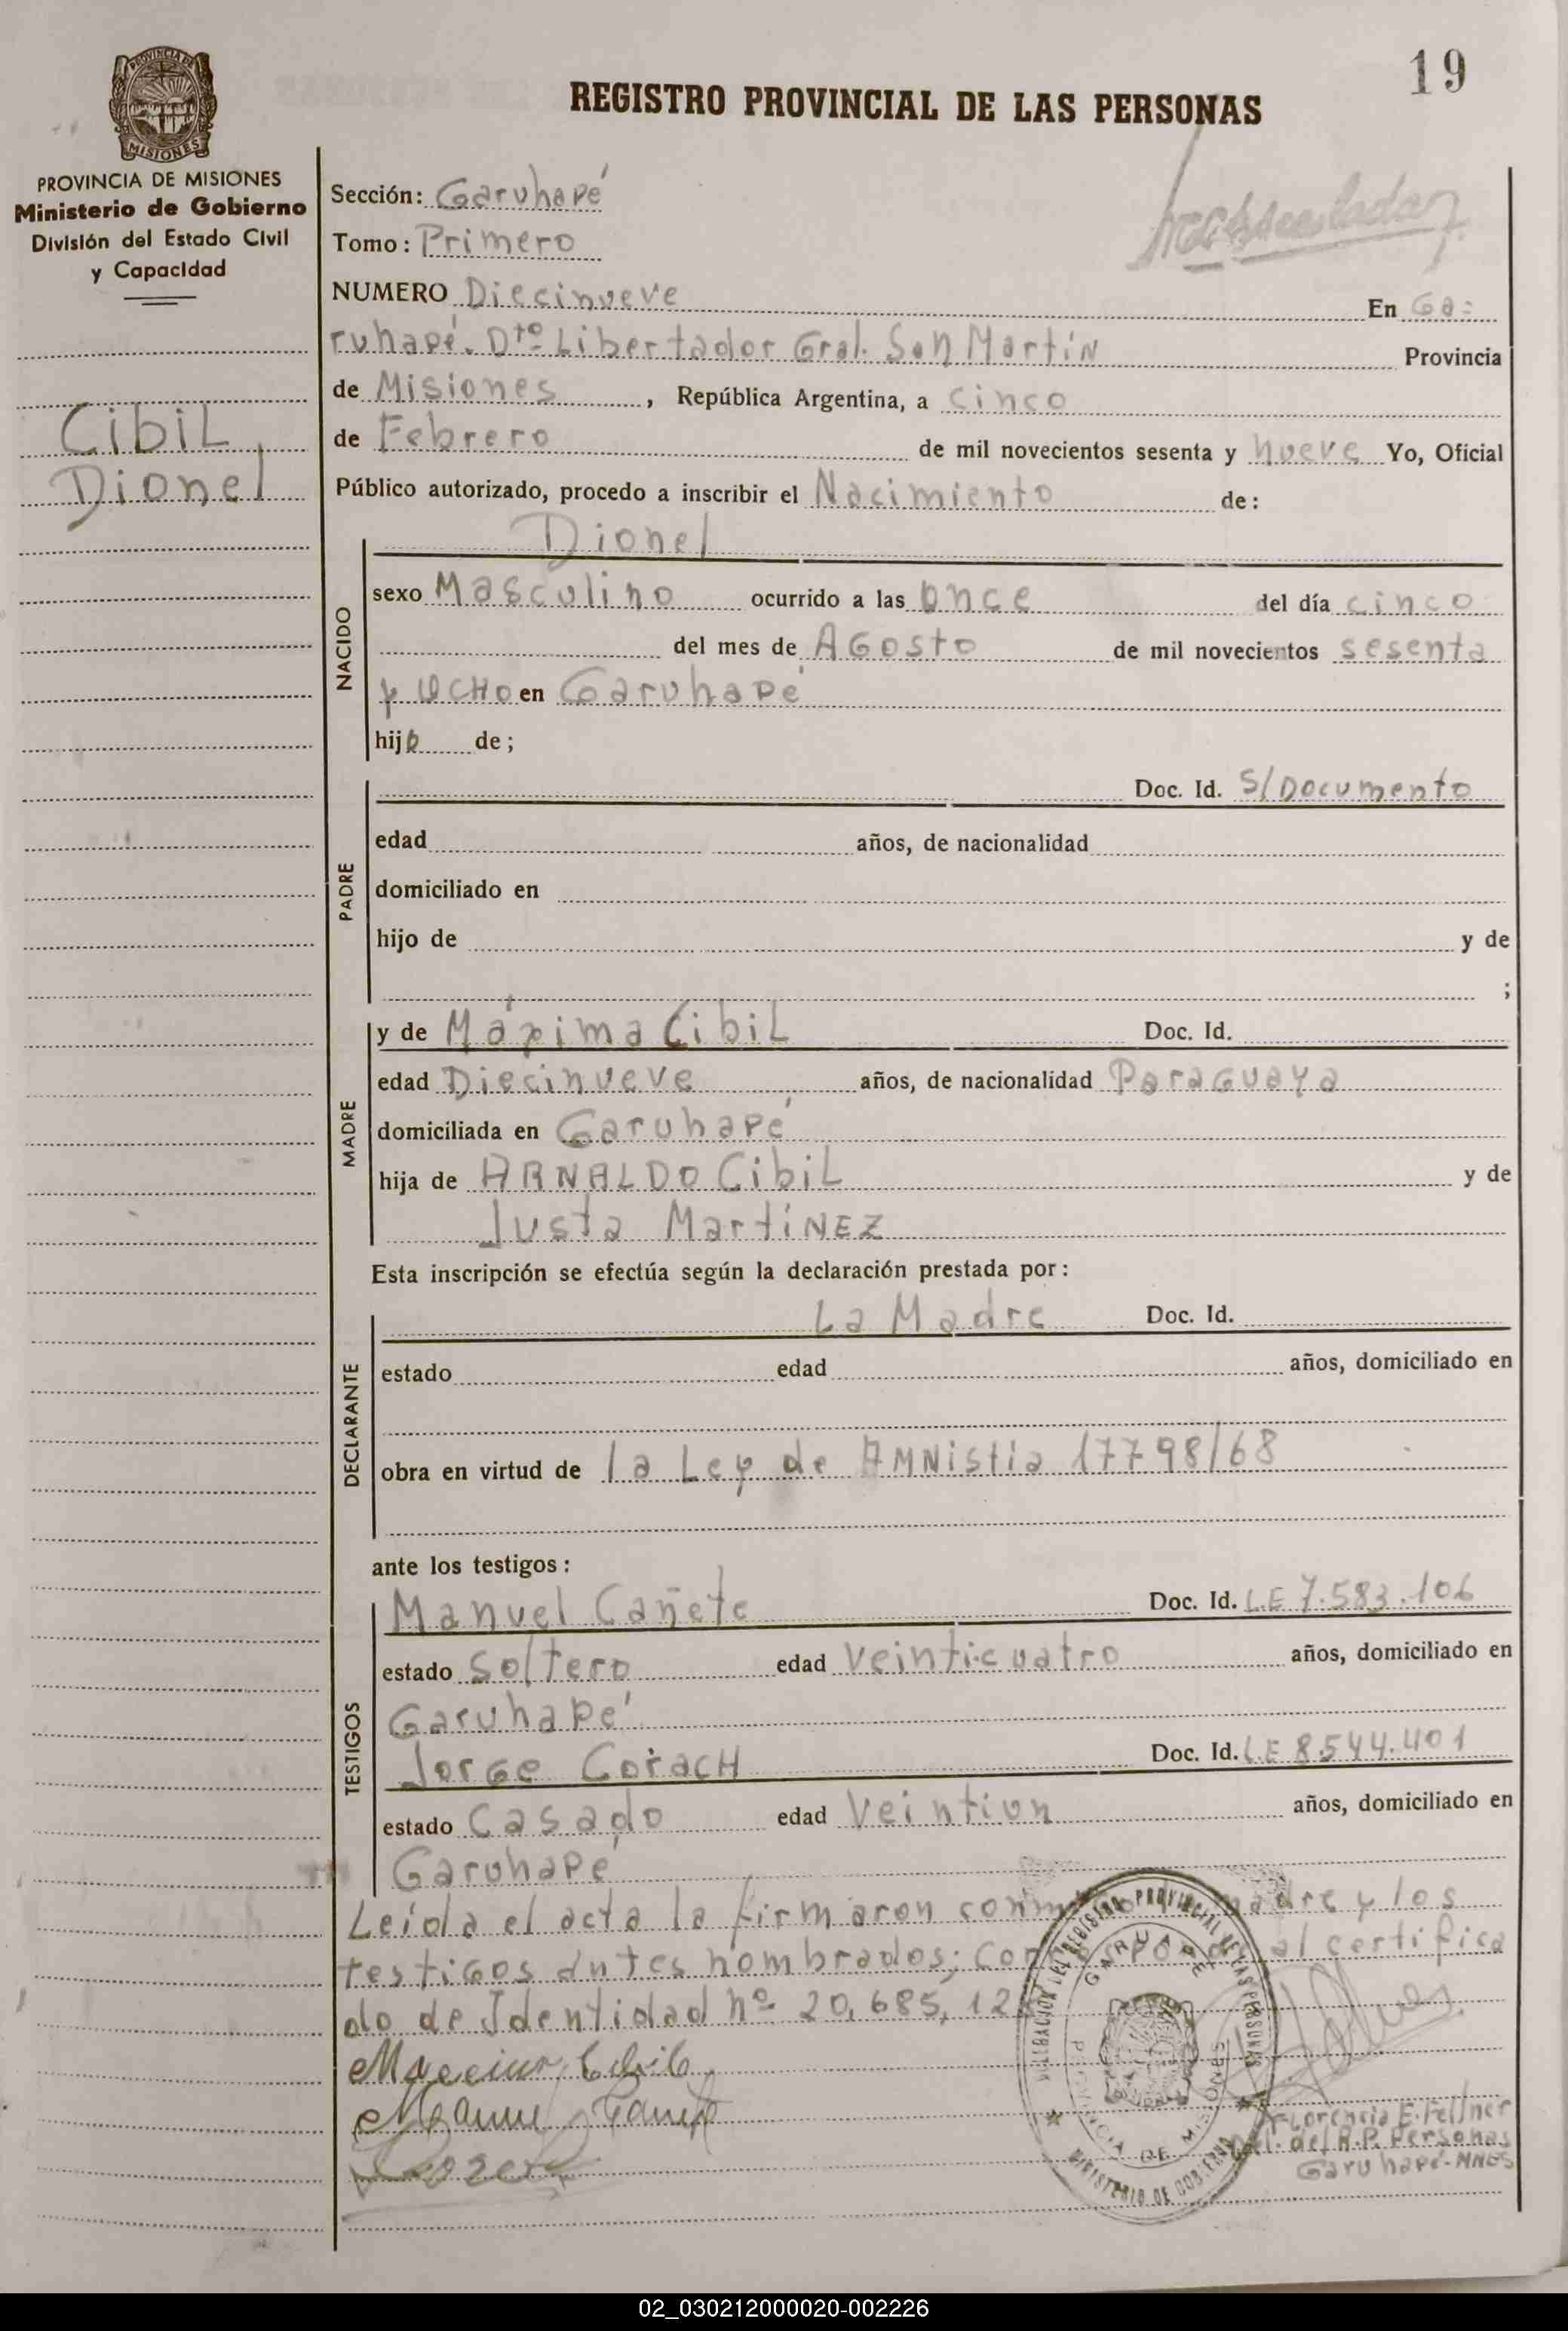 19
REGISTRO PROVINCIAL DE LAS PERSONAS
PROVINCIA DE MISIONES
PROVINCIA DE MISIONES
Ministerio de Gobierno
División del Estado Civil
y Capacidad
Cibil
Dionel
Sección: Garuhapé
Tomo: Primero
NUMERO Diecinueve En Ga=
ruhapé. Dtº Libertador Gral. San Martín Provincia
de Misiones, República Argentina, a cinco
de Febrero de mil novecientos sesenta y nueve Yo, Oficial
Público autorizado, procedo a inscribir el Nacimiento de:
NACIDO
Dionel
sexo Masculino ocurrido a las once del día cinco
del mes de AGosto de mil novecientos sesenta
y OCHO en Garuhapé
hijo de;
PADRE
Doc. Id. S/Documento
edad años, de nacionalidad
domiciliado en
hijo de y de
;
MADRE
y de Máxima Cibil Doc. Id.
edad Diecinueve años, de nacionalidad ParaGuaya
domiciliada en Garuhapé
hija de ARNALDO Cibil y de
Justa MartíNEZ
Esta inscripción se efectúa según la declaración prestada por:
DECLARANTE
La Madre Doc. Id.
estado edad años, domiciliado en
obra en virtud de la Ley de AMNistia 17798/68
ante los testigos:
TESTIGOS
Manuel Cañete Doc. Id. L.E 7.583.106
estado Soltero edad Veinticuatro años, domiciliado en
Garuhapé
Jorge CoracH Doc. Id. L.E 8544.401
estado Casado edad Veintiun años, domiciliado en
Garuhapé
Leída el acta la firmaron madre y los
testigos antes nombrados; al certifica
do de Identidad nº 20,685,12
DEL REGISTRO PROVINCIAL DE LAS PERSONAS
GARUHAPE
PROVINCIA DE MISIONES
MINISTERIO DE GOBIERNO
Florencia E. Fellner
Del. del R.P. Personas
Garuhapé-MNES
02_030212000020-002226